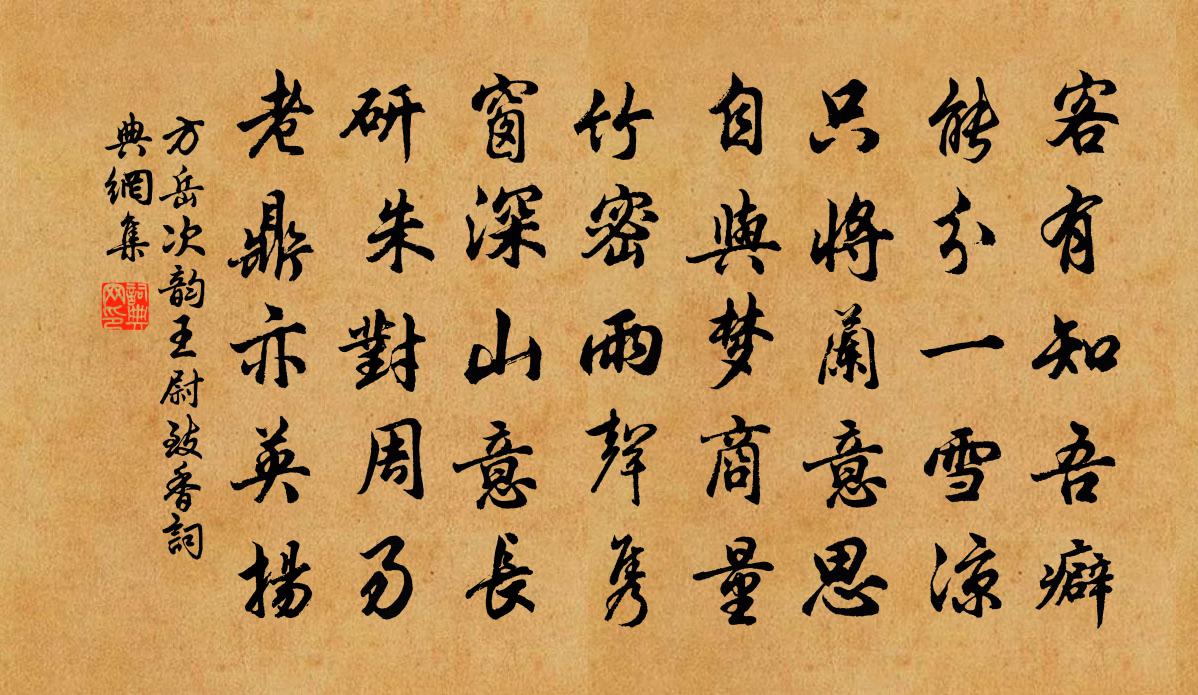 客有知吾癖
能分一雪涼
只將蘭意思
自與梦商量
竹密雨聲隽
窗深山意長
研朱對周易
老鼎亦英揚
方岳次韵王尉致香詞
典網集
詞典網印